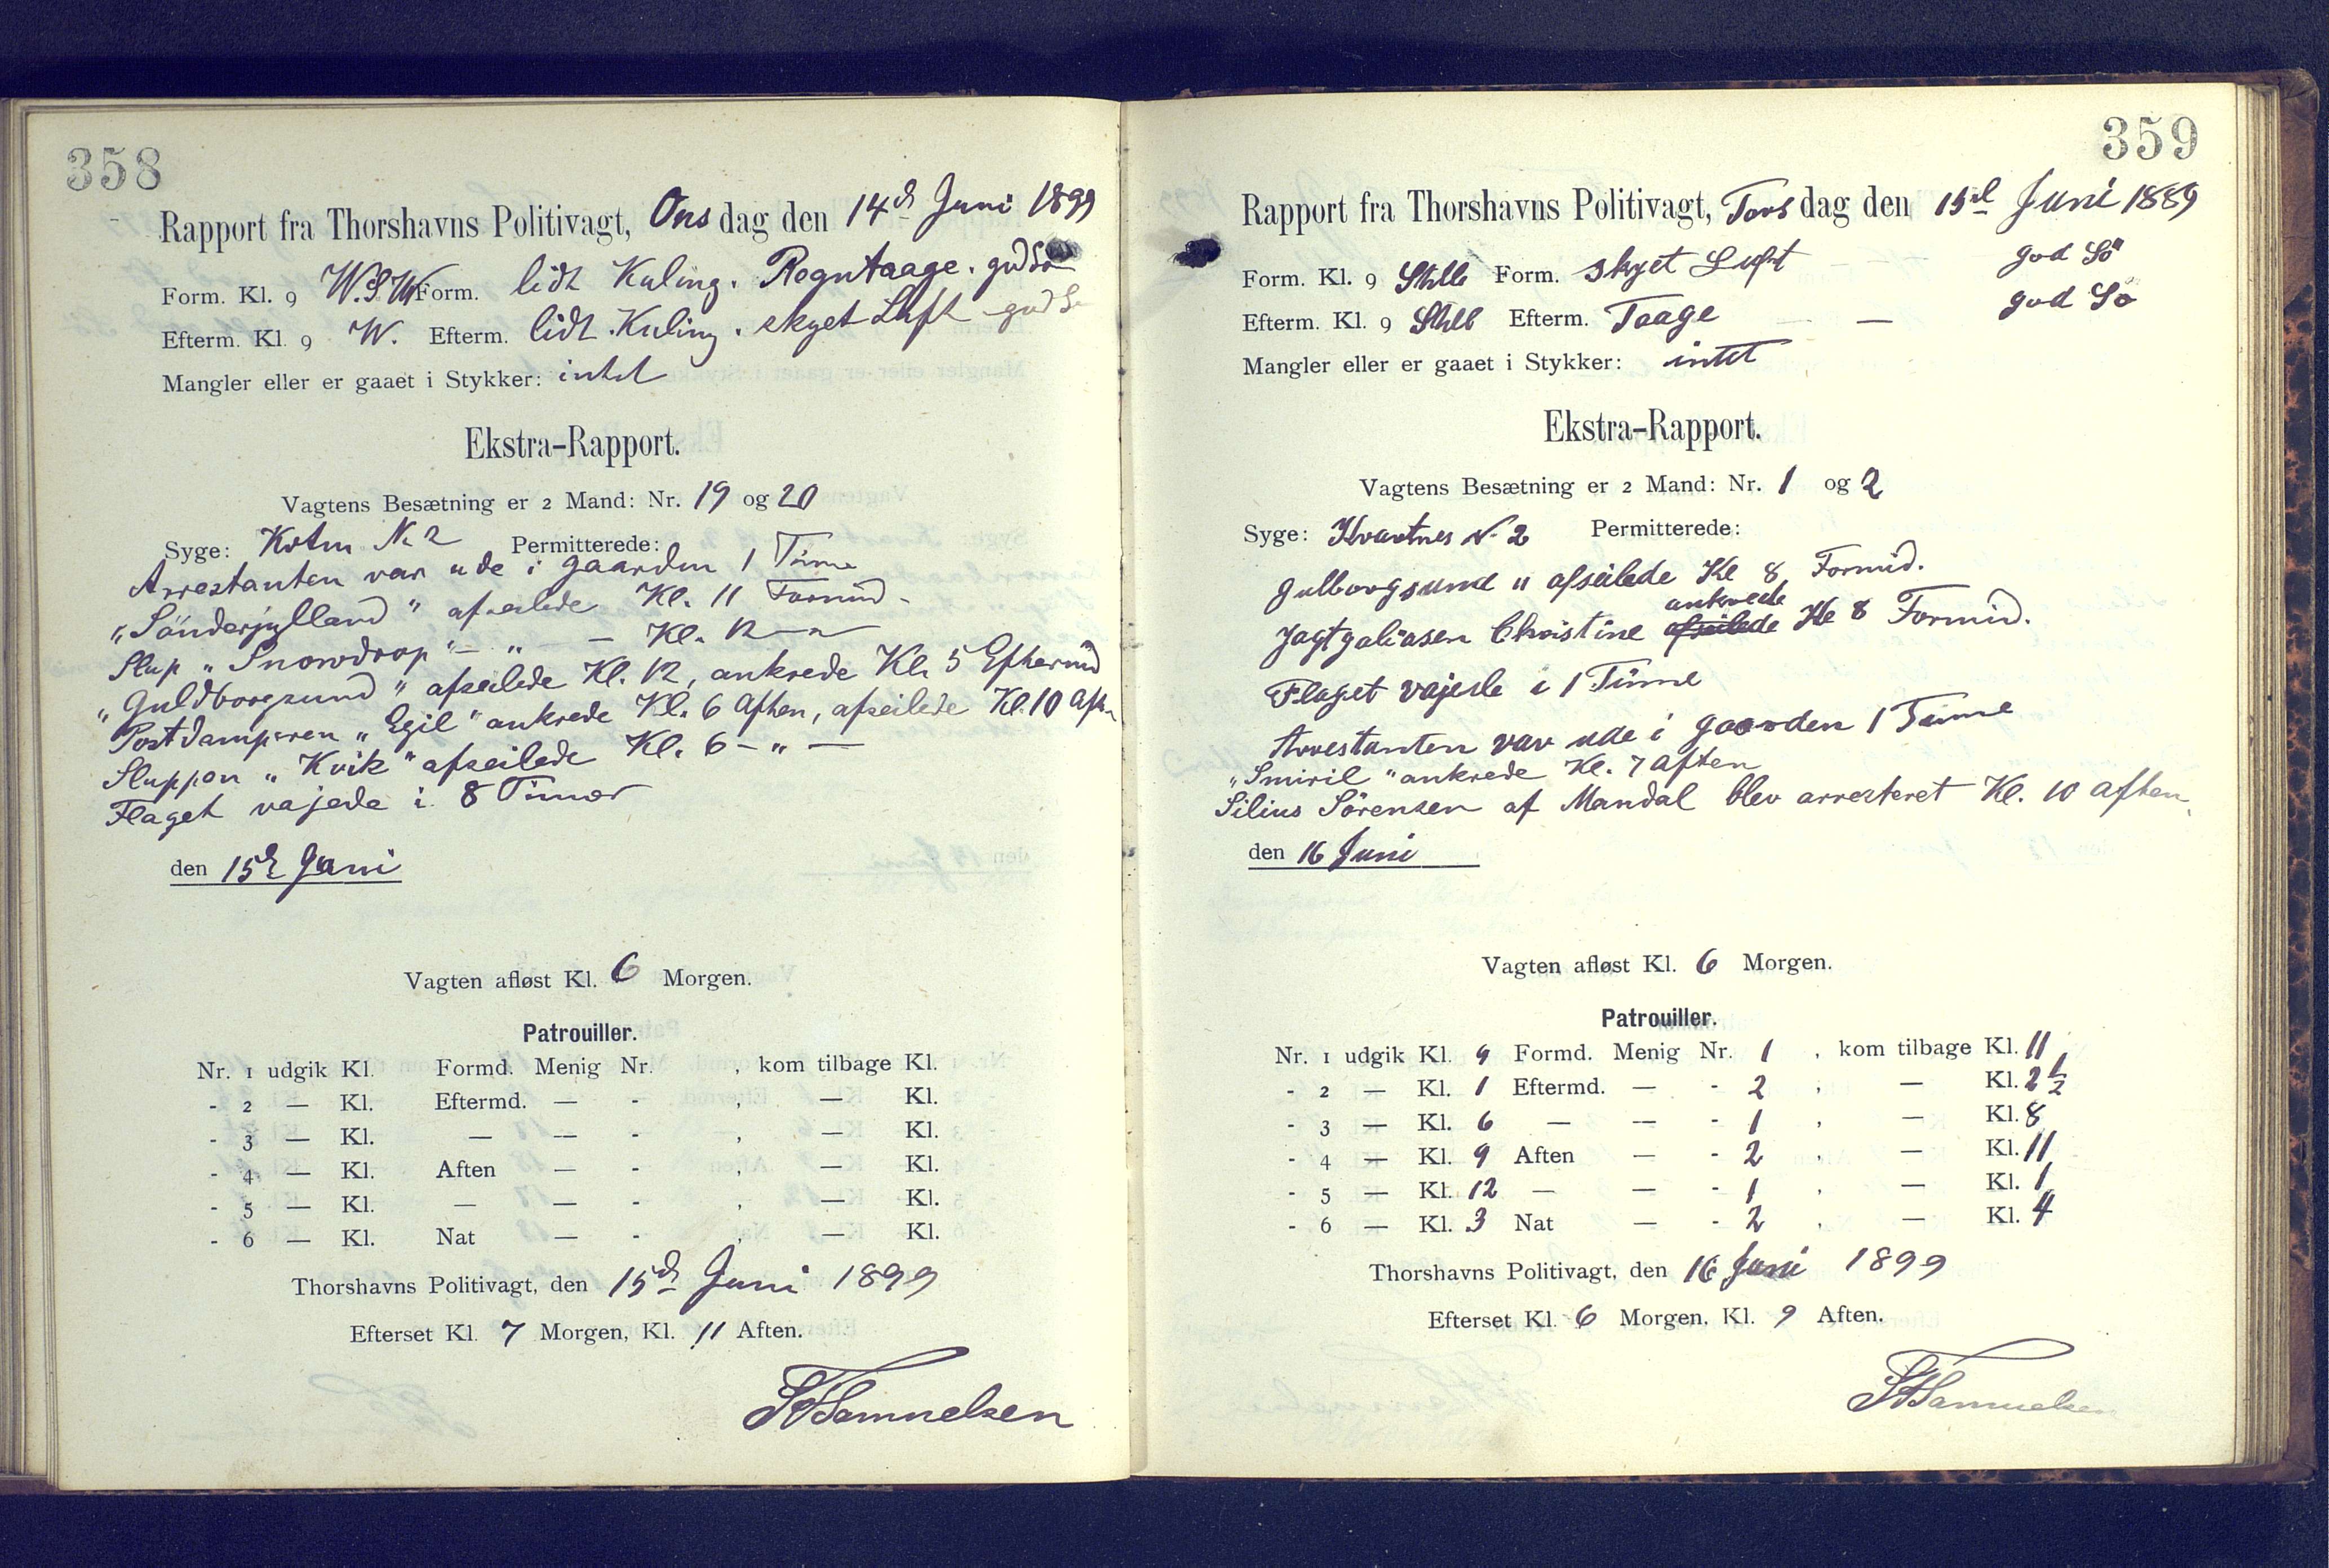 358
Rapport fra Thorshavns Politivagt, Onsdag den 14d Juni 1899
Form. Kl. 9 W.S.W Form. lidt Kuling. Regntaage. god Sö
Efterm. Kl. 9 W. Efterm. lidt Kuling. skyet Luft god S
Mangler eller er gaaet i Stykker: intet
Ekstra-Rapport.
Vagtens Besætning er 2 Mand: Nr. 19 og 20
Syge: N. 2 Permitterede:
Arrestanten var ude i Gaarden 1 Time
"Sönderjylland" afseilede Kl. 11 Formid.
Slup "Snowdrop" — " — Kl. 12 — " —
"Guldborgsund" afseilede Kl. 12, ankrede Kl. 5 Eftermid
Postdamperen "Egil" ankrede Kl. 6 Aften, afseilede Kl. 10 Aften
Sluppen "Kvik" afseilede Kl. 6 — " —
Flaget vajede i 8 Timer
den 15d Juni
Vagten afløst Kl. 6 Morgen.
Patrouiller.
Nr. 1 udgik Kl. Formd. Menig Nr. , kom tilbage Kl.
- 2 — Kl. Eftermd. — - , — Kl.
- 3 — Kl. — — - , — Kl.
- 4 — Kl. Aften — - , — Kl.
- 5 — Kl. — — - , — Kl.
- 6 — Kl. Nat — - , — Kl.
Thorshavns Politivagt, den 15d Juni 1899
Efterset Kl. 7 Morgen, Kl. 11 Aften.
Samuelsen
359
Rapport fra Thorshavns Politivagt, Torsdag den 15d Juni 1889
Form. Kl. 9 Stille Form. skyet Luft god Sö
Efterm. Kl. 9 Stille Efterm. Taage — god Sö
Mangler eller er gaaet i Stykker: intet
Ekstra-Rapport.
Vagtens Besætning er 2 Mand: Nr. 1 og 2
Syge: Kvartnes N. 2 Permitterede:
Gulborgsund " afseilede Kl 8 Formid.
ankrede
Jagtgaliasen Christine afseilede Kl 8 Formid.
Flaget vajede i 1 Time
Arrestanten var ude i Gaarden 1 Time
"Smiril" ankrede Kl. 7 Aften
Silius Sörensen af Mandal blev arresteret Kl. 10 Aften.
den 16 Juni
Vagten afløst Kl. 6 Morgen.
Patrouiller.
Nr. 1 udgik Kl. 9 Formd. Menig Nr. 1 , kom tilbage Kl. 11
- 2 — Kl. 1 Eftermd. — - 2 , — Kl. 2 1/2
- 3 — Kl. 6 — — - 1 , — Kl. 8
- 4 — Kl. 9 Aften — - 2 , — Kl. 11
- 5 — Kl. 12 — — - 1 , — Kl. 1
- 6 — Kl. 3 Nat — - 2 , — Kl. 4
Thorshavns Politivagt, den 16 Juni 1899
Efterset Kl. 6 Morgen, Kl. 9 Aften.
Samuelsen